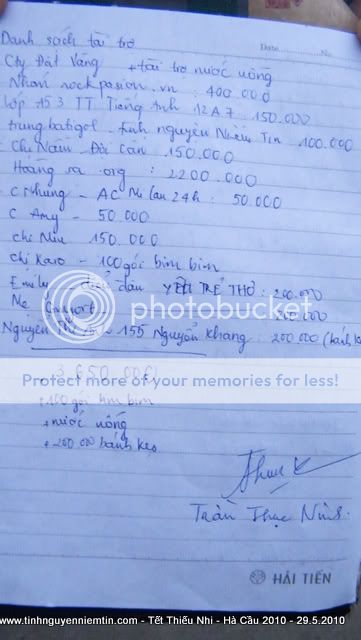 Danh sách tài trợ
Date No
Cty Đất Vàng + tài trợ nước uống
Nhóm rockpasion.vn : 400.000
lớp 153 TT Tiếng Anh 12A7 : 150.000
trungbatigol - tình nguyện Niềm Tin : 100.000
Chị Nấm - Đội Cấn 150.000
Hoàng sa.org : 2200.000
C Nhung - AC Milan 24h : 50.000
C Amy - 50.000
chị Níu 150.000
chị Karo - 100 gói bim bim
Emily - diễn đàn YÊU TRẺ THƠ : 200.000
Mẹ
Nguyễn - 155 Nguyễn Khang : 200.000
photobucket
Protect more of your memories for less!
3.650.000
+ 100 gói bim bim
+ nước uống
+ 200.000 bánh kẹo
Trần Thục Ninh
HẢI TIẾN
www.tinhnguyenniemtin.com - Tết Thiếu Nhi - Hà Cầu 2010 - 29.5.2010